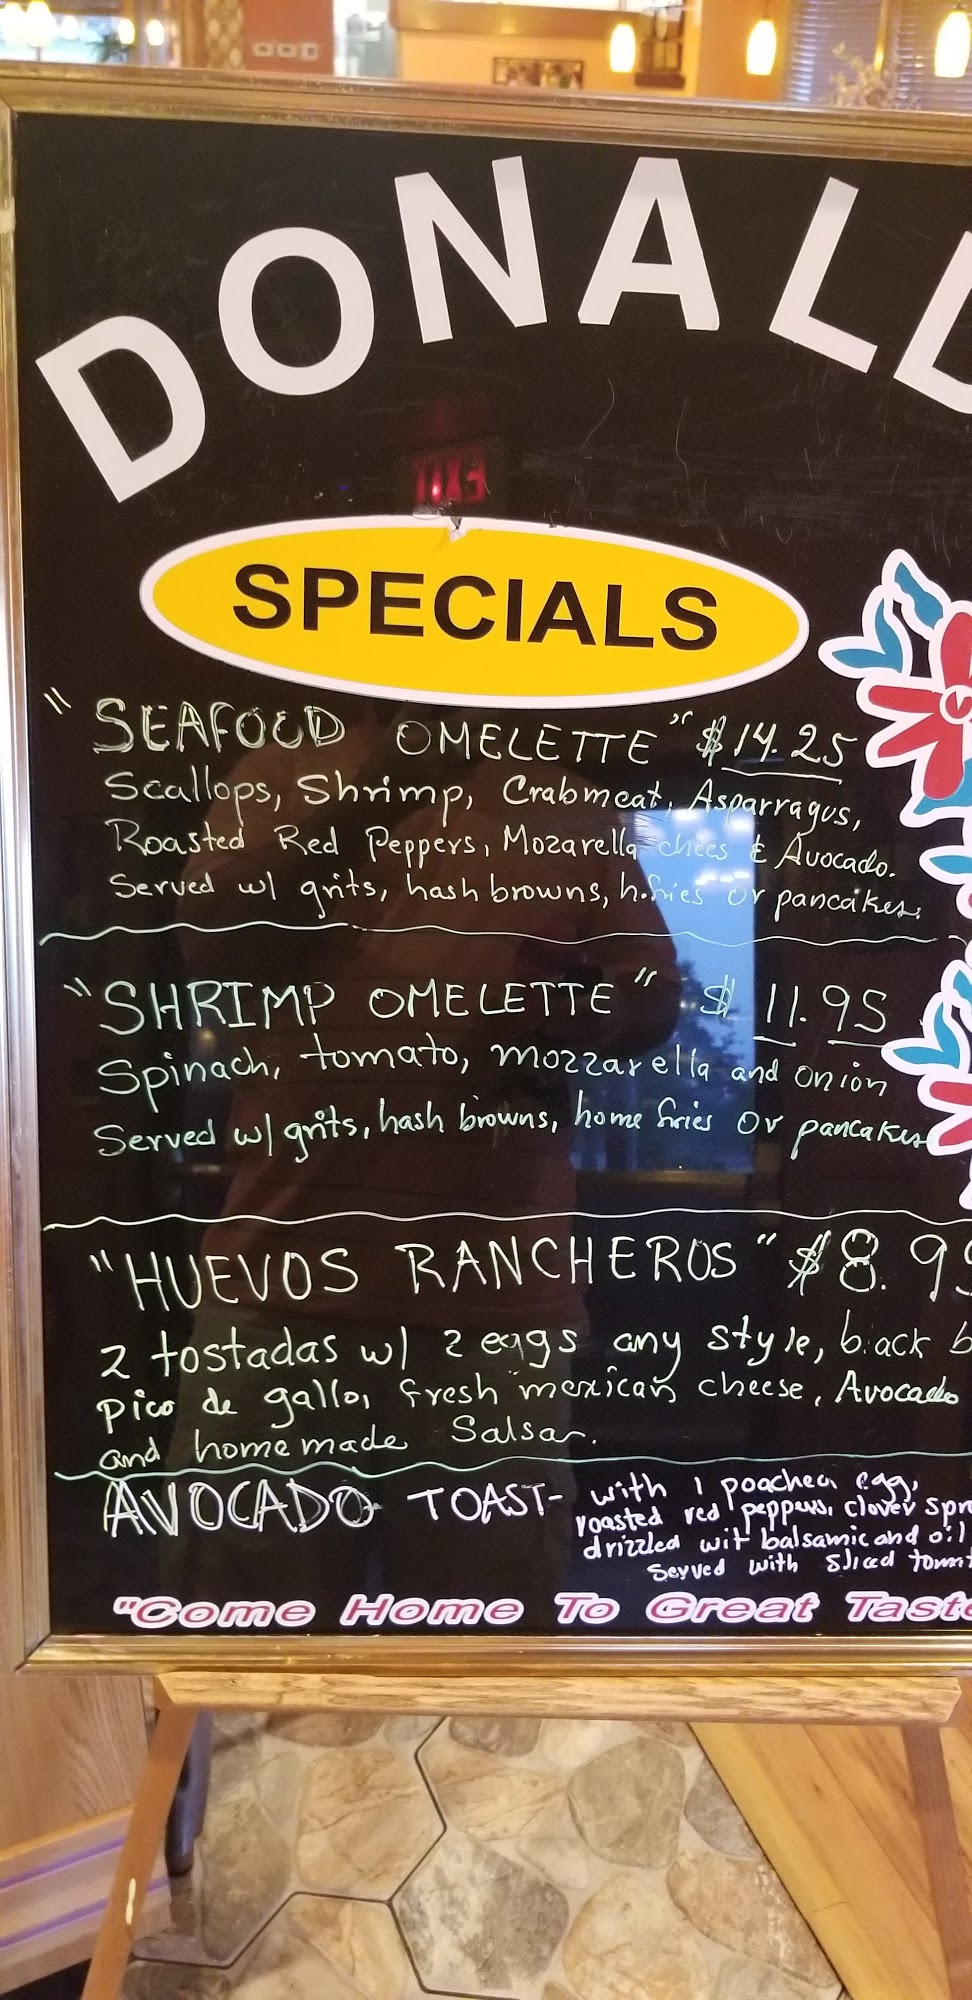 DONALD
SPECIALS
"SEAFOOD OMELETTE" $14.25
Scallops, Shrimp, Crabmeat, Asparragus,
Roasted Red Peppers, Mozarella chees & Avocado.
Served w/ grits, hash browns, h.fries or pancakes.
"SHRIMP OMELETTE" $11.95
Spinach, tomato, mozzarella and onion
Served w/ grits, hash browns, home fries or pancakes
"HUEVOS RANCHEROS" $8.95
2 tostadas w/ 2 eggs any style, black b
pico de gallo, fresh mexican cheese, Avocado
and homemade Salsa.
AVOCADO TOAST- with 1 poached egg,
roasted red peppers, clover spr
drizzled wit balsamic and oil
Served with sliced tomat
"Come Home To Great Taste